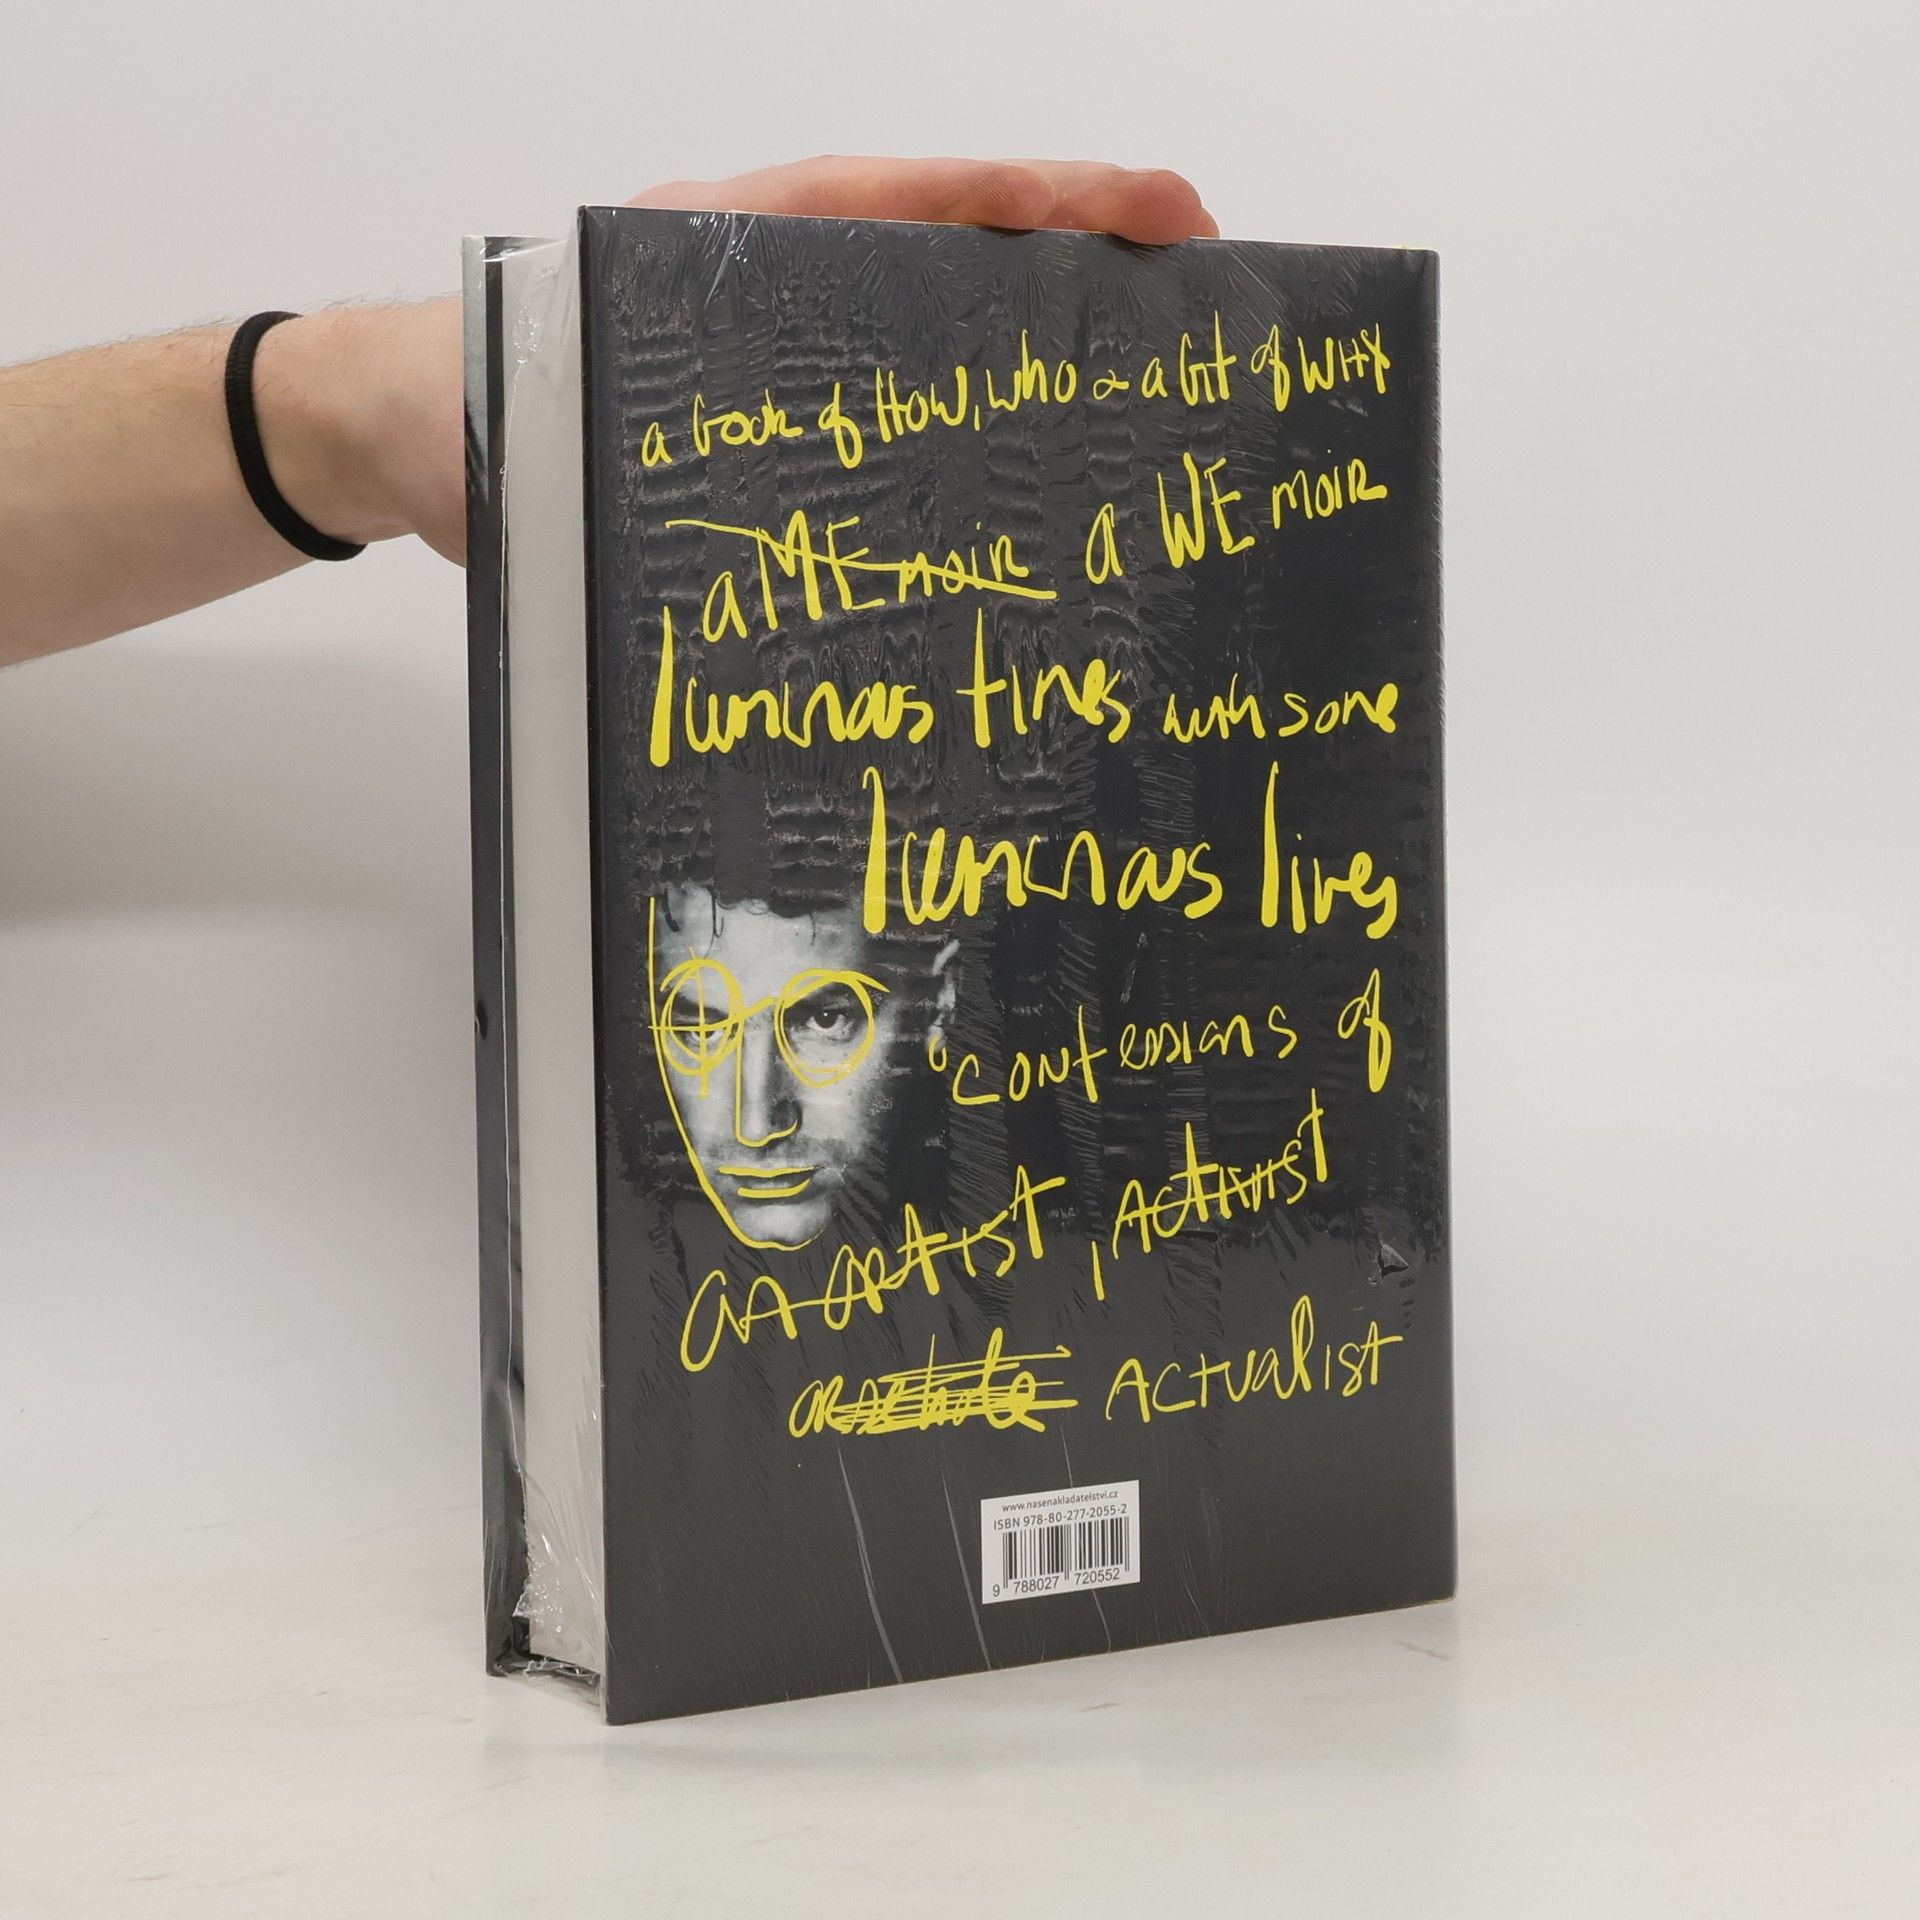 a book of How, who & a bit of WHY
a MEmoir a WE moir
luminous times with some
luminous lives
confessions of
an artist, Activist
Actualist
www.nasenakladatelstvi.cz
ISBN 978-80-277-2055-2
9 788027 720552